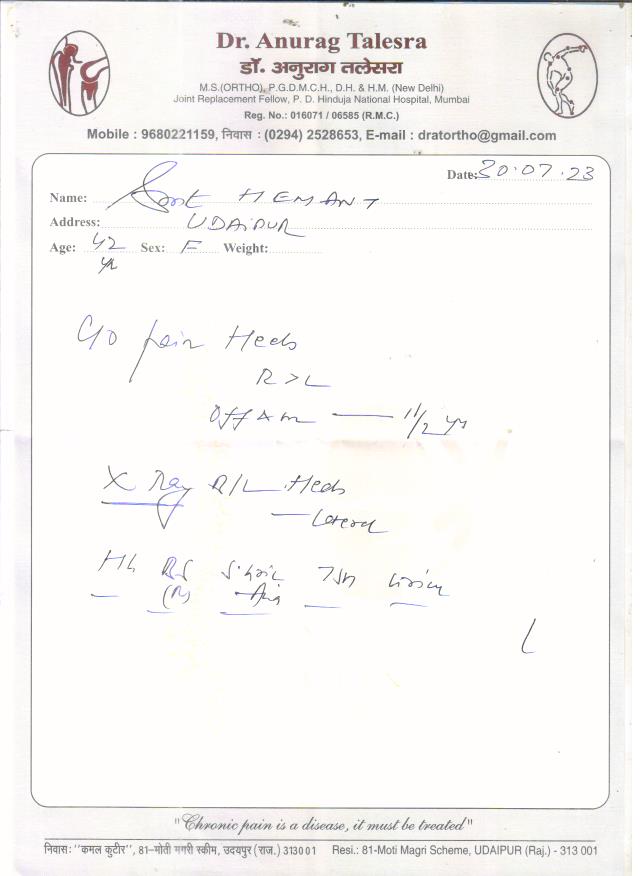 Dr. Anurag Talesra
डॉ. अनुराग तलेसरा
M.S.(ORTHO), P.G.D.M.C.H., D.H. & H.M. (New Delhi)
Joint Replacement Fellow, P. D. Hinduja National Hospital, Mumbai
Reg. No.: 016071 / 06585 (R.M.C.)
Mobile : 9680221159, निवास : (0294) 2528653, E-mail : dratortho@gmail.com
Date: 30.07.23
Name: HEMANT
Address: UDAIPUR
Age: 42 Sex: F Weight:
yr
C/o pain Heels
R > L
off & on — 1 1/2 yrs
X Ray R/L Heels
— Lateral
Hb BS S. Uric TSH Urine
(R) Acid
"Chronic pain is a disease, it must be treated"
निवास: "कमल कुटीर", 81-मोती मगरी स्कीम, उदयपुर (राज.) 313001 Resi.: 81-Moti Magri Scheme, UDAIPUR (Raj.) - 313 001